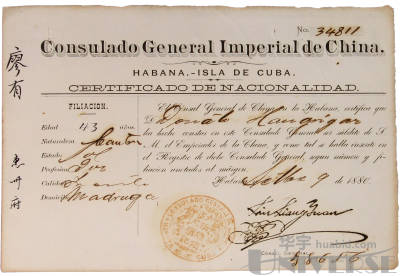 No. 34811
Consulado General Imperial de China.
HABANA.-ISLA DE CUBA.
CERTIFICADO DE NACIONALIDAD.
廖有
惠州府
FILIACION.
Edad 43 años.
Naturaleza Canton
Estado
Profesion
Calidad
Domicilio Madruga
El Consul General de China en la Habana, certifica que
D. Donato
ha hecho constar en este Consulado General ser súbdito de S.
M. el Emperador de la China, y como tal se halla inscrito en
el Registro de dicho Consulado General, segun número y fi-
liacion anotados al márgen.
Habana, 9 de 1880.
CONSULADO GENERAL
El Consul General
华宇 huabid.com
UNIVERSE